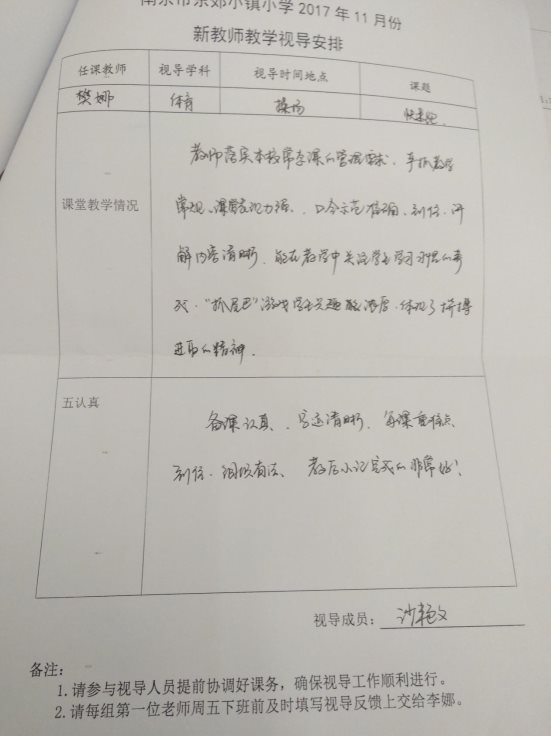 南京市东郊小镇小学 2017 年 11 月份
新教师教学视导安排
任课教师 视导学科 视导时间地点 课题
樊娜 体育 操场 快速跑
课堂教学情况
教师落实本校常态课的管理要求，手抓教学
常规、课堂表现力强、口令示范准确、到位、讲
解内容清晰，能在教学中关注学生学习习惯的养
成，“抓尾巴”游戏学生兴趣浓厚，体现了拼搏
进取的精神。
五认真
备课认真、书写清晰，每课重难点
到位、组织有法、教后小记写的非常好！
视导成员：沙艳文
备注：
1. 请参与视导人员提前协调好课务，确保视导工作顺利进行。
2. 请每组第一位老师周五下班前及时填写视导反馈上交给李娜。